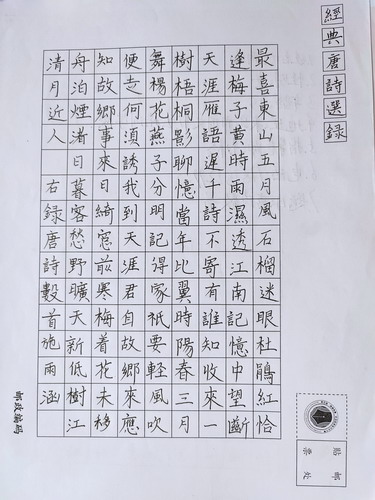 經典唐詩選錄
最喜東山五月風石榴迷眼杜鵑紅恰
逢梅子黃時雨濕透江南記憶中望斷
天涯雁語遲千詩不寄有誰知收來一
樹梧桐影聊憶當年比翼時陽春三月
舞楊花燕子分明記得家祇要輕風吹
便走何須誘我到天涯君自故鄉來應
知故鄉事來日綺窓前寒梅着花未移
舟泊煙渚日暮客愁野曠天新低樹江
清月近人 右錄唐詩數首施雨涵
郵票
貼處
郵政編碼